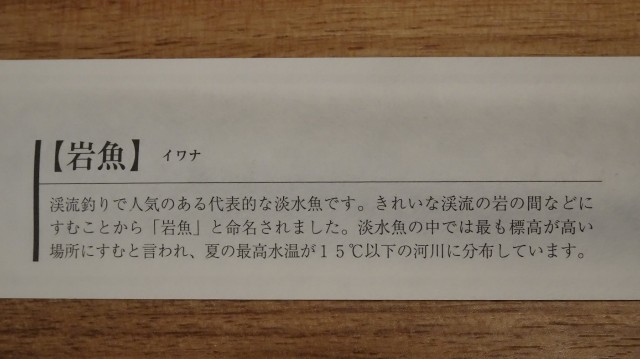 【岩魚】 イワナ
渓流釣りで人気のある代表的な淡水魚です。きれいな渓流の岩の間などに
すむことから「岩魚」と命名されました。淡水魚の中では最も標高が高い
場所にすむと言われ、夏の最高水温が１５℃以下の河川に分布しています。